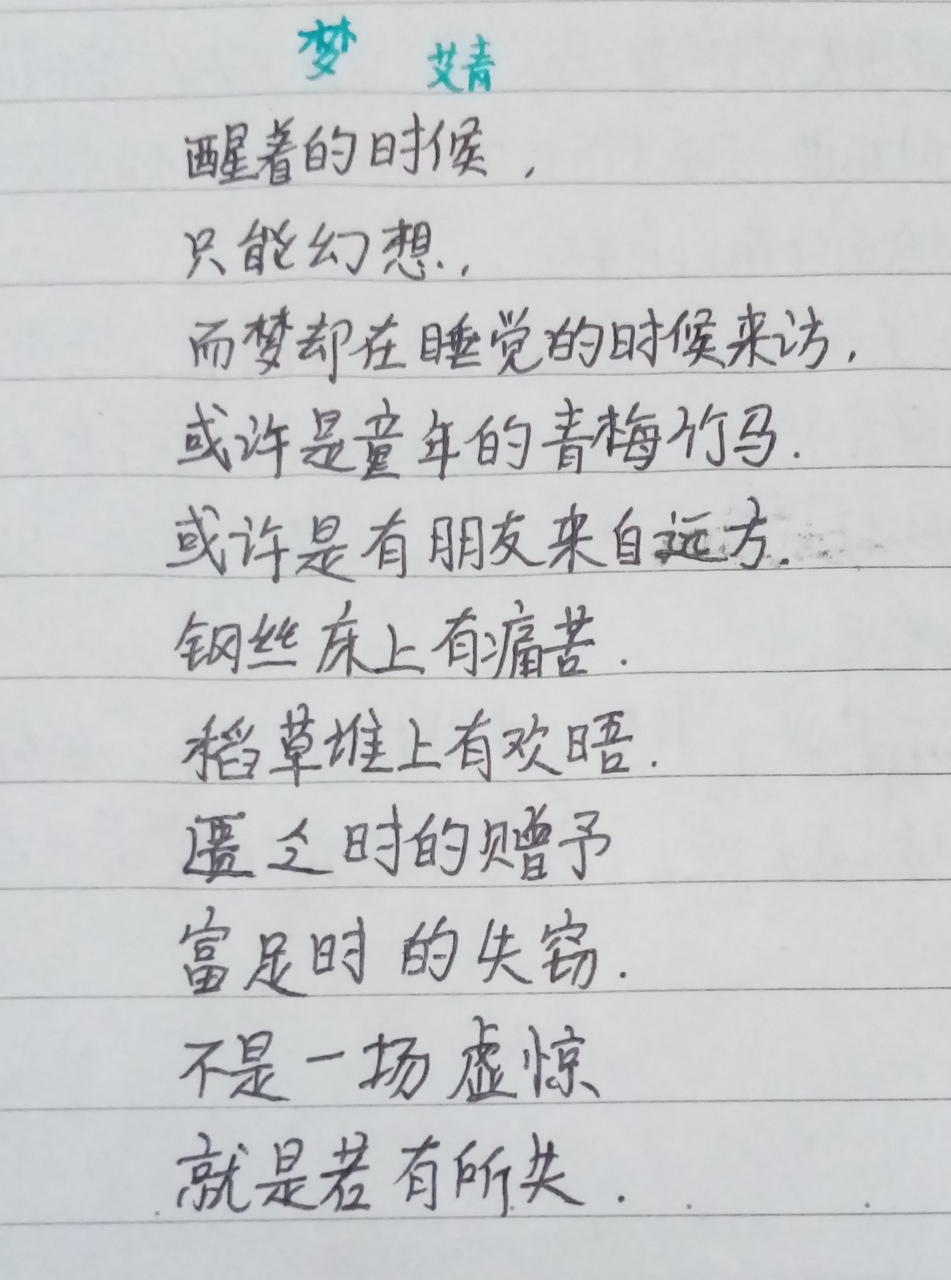 梦 艾青
醒着的时候,
只能幻想,
而梦却在睡觉的时候来访,
或许是童年的青梅竹马.
或许是有朋友来自远方.
钢丝床上有痛苦.
稻草堆上有欢晤.
匮乏时的赠予
富足时的失窃.
不是一场虚惊
就是若有所失.